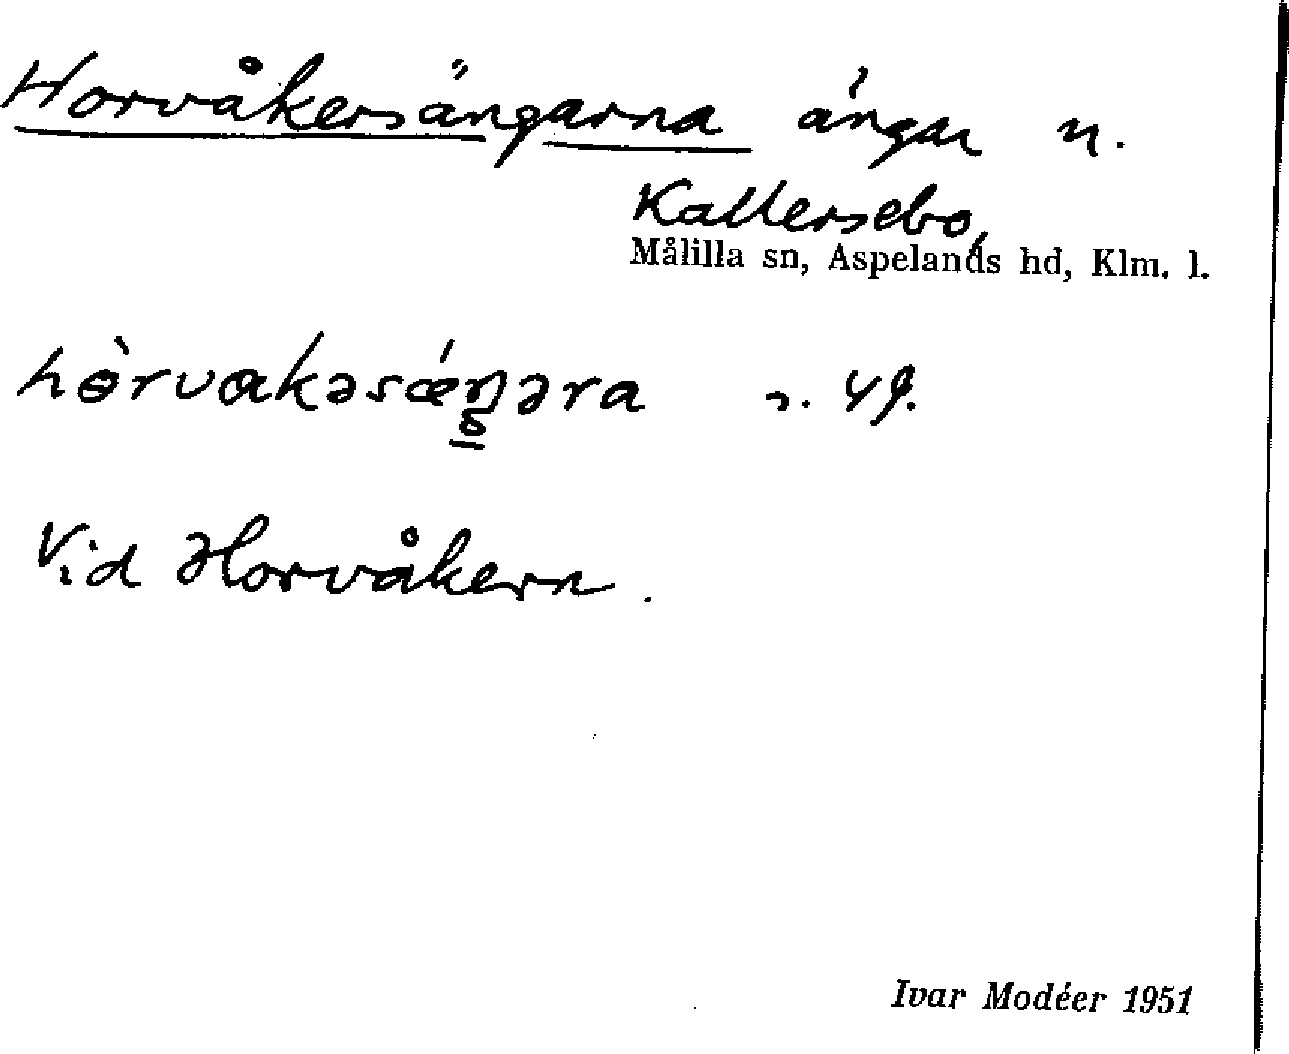 Horvåkersängarna ängar n.
Kallersebo,
Målilla sn, Aspelands hd, Klm. l.
hɵ̀rvakəsǽŋəra
Vid Horvåkern.
Ivar Modéer 1951